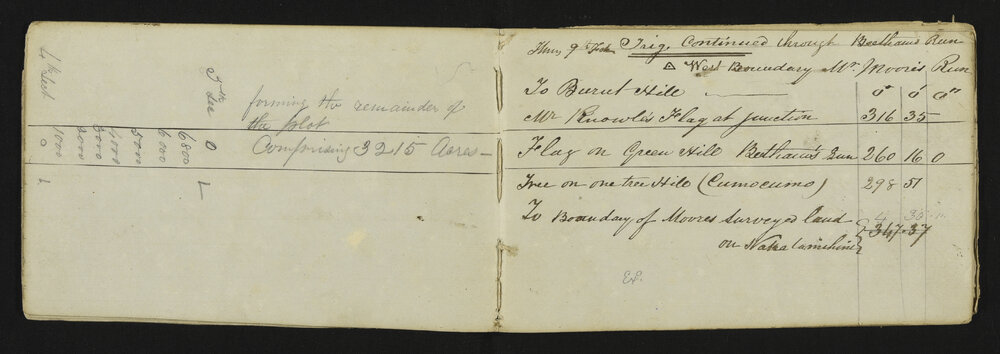 4th Sect 0 L
1000
2000
3000
4000
5000
6000
6800
0 L
forming the remainder of
the plot
Comprising 3215 Acres
Thurs 9th Feb Trig. Continued through Beethams Run
△ West Boundary Mr Moores Run
To Burnt Hill 0° 0' 0"
Mr Knowles Flag at junction 316 35
Flag on Green Hill Beetham's Run 260 16 0
Tree on one tree Hill (Cumocumo) 298 51
To Boundary of Moores surveyed land 4 36
on 347 37
Ex.